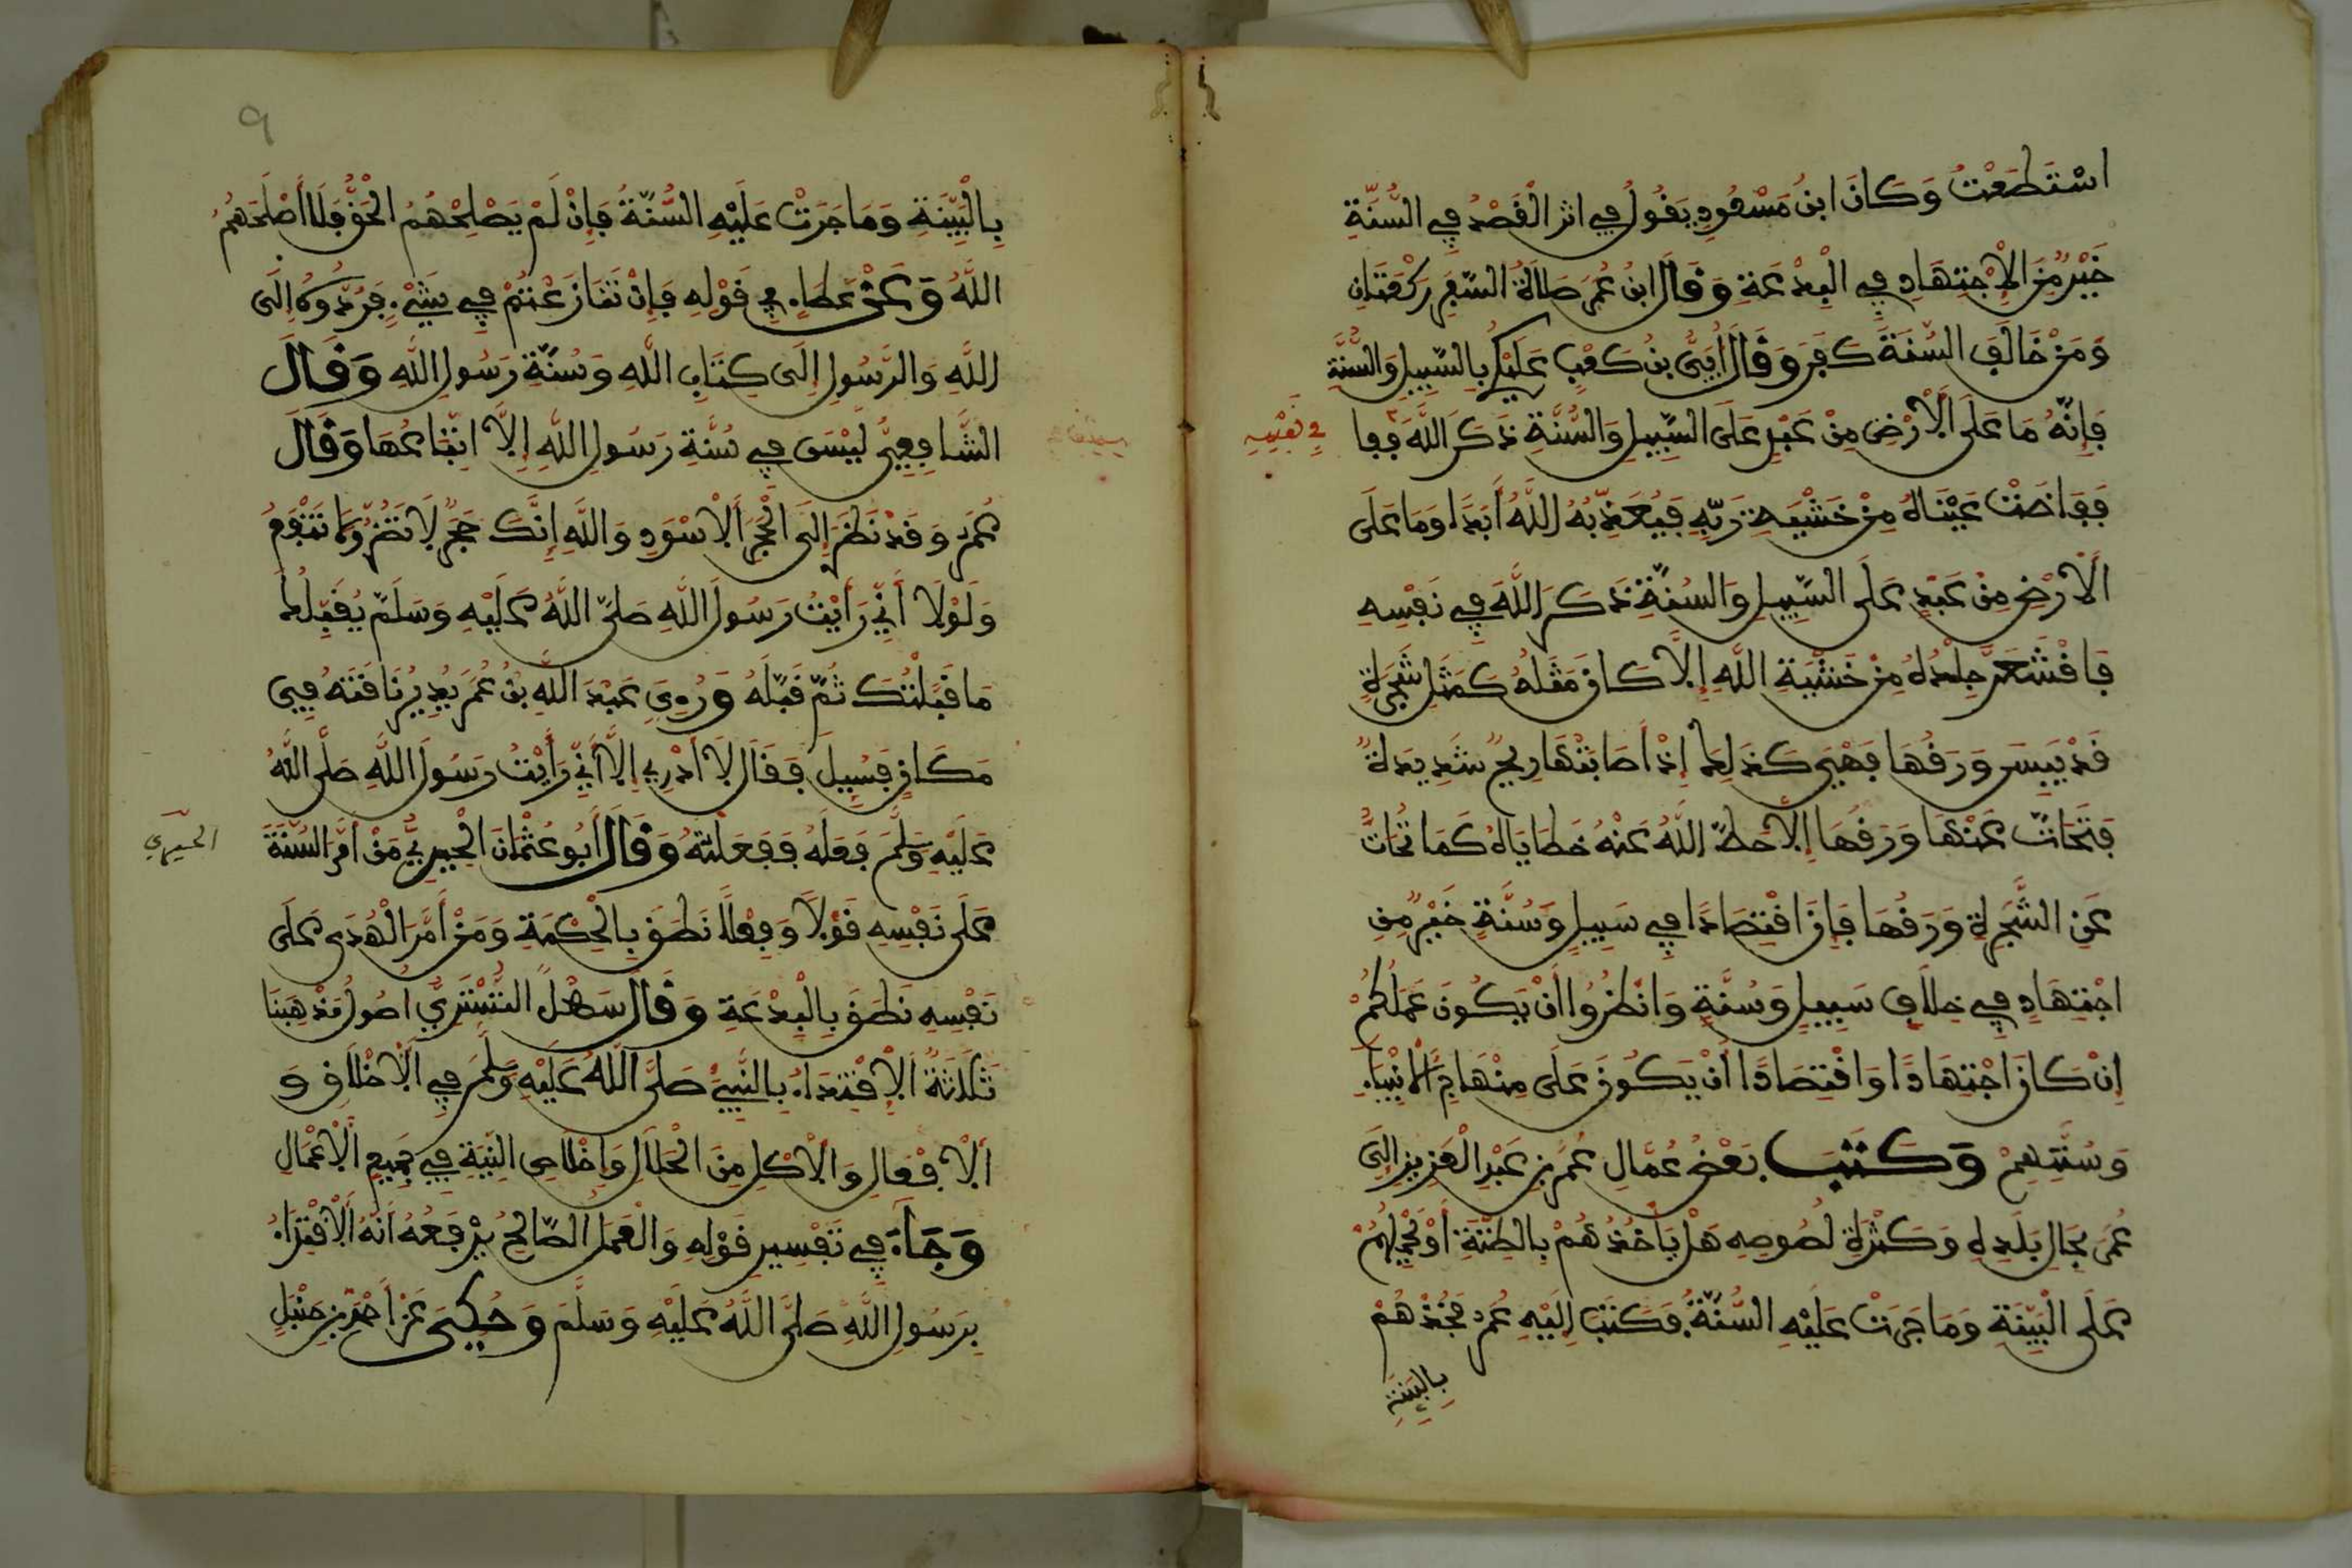 اسْتَطَعْتُ وَكَانَ ابْنُ مَسْعُودٍ يَقُولُ في اثر الْقَصْدُ فِي السُّنَّةِ
خَيْرٌ مِّنَ الِاجْتِهَادِ فِي الْبِدْعَةِ وَقَالَ ابْنُ عُمَرَ صَلَاةُ السَّفَرِ رَكْعَتَانِ
وَمَنْ خَالَفَ السُّنَّةَ كَفَرَ وَقَالَ أُبَيُّ بْنُ كَعْبٍ عَلَيْكُمْ بِالسَّبِيلِ وَالسُّنَّةِ
فَإِنَّهُ مَا عَلَى الْأَرْضِ مِنْ عَبْدٍ عَلَى السَّبِيلِ وَالسُّنَّةِ ذَكَرَ اللَّهَ
في نفسه
فَفَاضَتْ عَيْنَاهُ مِنْ خَشْيَةِ رَبِّهِ فَيُعَذِّبُهُ اللَّهُ أَبَدًا وَمَا عَلَى
الْأَرْضِ مِنْ عَبْدٍ عَلَى السَّبِيلِ وَالسُّنَّةِ ذَكَرَ اللَّهَ فِي نَفْسِهِ
فَاقْشَعَرَّ جِلْدُهُ مِنْ خَشْيَةِ اللَّهِ إِلَّا كَانَ مَثَلُهُ كَمَثَلِ شَجَرَةٍ
قَدْ يَبِسَ وَرَقُهَا فَهِيَ كَذَلِكَ إِذْ أَصَابَتْهَا رِيحٌ شَدِيدَةٌ
فَتَحَاتَّ عَنْهَا وَرَقُهَا إِلَّا حَطَّ اللَّهُ عَنْهُ خَطَايَاهُ كَمَا تُحَاتُّ
عَنِ الشَّجَرَةِ وَرَقُهَا فَإِنَّ اقْتِصَادًا فِي سَبِيلٍ وَسُنَّةٍ خَيْرٌ مِّنِ
اجْتِهَادٍ فِي خِلَافِ سَبِيلٍ وَسُنَّةٍ وَانْظُرُوا أَنْ يَكُونَ عَمَلُكُمْ
إِنْ كَانَ اجْتِهَادًا وَاقْتِصَادًا أَنْ يَكُونَ عَلَى مِنْهَاجِ الْأَنْبِيَاءِ
وَسُنَّتِهِمْ وَكَتَبَ بَعْضُ عُمَّالِ عُمَرَ بْنِ عَبْدِ الْعَزِيزِ إِلَى
عُمَرَ بِحَالِ بَلَدِهِ وَكَثْرَةِ لُصُوصِهِ هَلْ يَأْخُذُهُمْ بِالظِّنَّةِ أَوْ يَحْمِلُهُمْ
عَلَى الْبَيِّنَةِ وَمَا جَرَتْ عَلَيْهِ السُّنَّةُ فَكَتَبَ إِلَيْهِ عُمَرُ خُذْهُمْ
بِالْبَيِّنَةِ
٩
بِالْبَيِّنَةِ وَمَا جَرَتْ عَلَيْهِ السُّنَّةُ فَإِنْ لَمْ يُصْلِحْهُمُ الْحَقُّ فَلَا أَصْلَحَهُمُ
اللَّهُ وَعَنْ عَطَاءٍ فِي قَوْلِهِ فَإِنْ تَنَازَعْتُمْ فِي شَيْءٍ فَرُدُّوهُ إِلَى
اللَّهِ وَالرَّسُولِ إِلَى كِتَابِ اللَّهِ وَسُنَّةِ رَسُولِ اللَّهِ وَقَالَ
الشَّافِعِيُّ لَيْسَ فِي سُنَّةِ رَسُولِ اللَّهِ إِلَّا اتِّبَاعُهَا وَقَالَ
عُمَرُ وَقَدْ نَظَرَ إِلَى الْحَجَرِ الْأَسْوَدِ وَاللَّهِ إِنَّكَ حَجَرٌ لَا تَضُرُّ وَلَا تَنْفَعُ
وَلَوْلَا أَنِّي رَأَيْتُ رَسُولَ اللَّهِ صَلَّى اللَّهُ عَلَيْهِ وَسَلَّمَ يُقَبِّلُكَ
مَا قَبَّلْتُكَ ثُمَّ قَبَّلَهُ وَرُءِيَ عَبْدُ اللَّهِ بْنُ عُمَرَ يُدِيرُ نَاقَتَهُ فِي
مَكَانٍ فَسُئِلَ فَقَالَ لَا أَدْرِي إِلَّا أَنِّي رَأَيْتُ رَسُولَ اللَّهِ صَلَّى اللَّهُ
عَلَيْهِ وَسَلَّمَ فَعَلَهُ فَفَعَلْتُهُ وَقَالَ أَبُو عُثْمَانَ الْحِيرِيُّ مَنْ أَمَّرَ السُّنَّةَ
الحيري
عَلَى نَفْسِهِ قَوْلًا وَفِعْلًا نَطَقَ بِالْحِكْمَةِ وَمَنْ أَمَّرَ الْهُدَى عَلَى
نَفْسِهِ نَطَقَ بِالْبِدْعَةِ وَقَالَ سَهْلٌ التُّسْتَرِيُّ اصُولُ مَذْهَبِنَا
ثَلَاثَةٌ الِاقْتِدَاءُ بِالنَّبِيِّ صَلَّى اللَّهُ عَلَيْهِ وَسَلَّمَ فِي الْأَخْلَاقِ وَ
الْأَفْعَالِ وَالْأَكْلُ مِنَ الْحَلَالِ وَإِخْلَاصُ النِّيَّةِ فِي جَمِيعِ الْأَعْمَالِ
وَجَاءَ فِي تَفْسِيرِ قَوْلِهِ وَالْعَمَلُ الصَّالِحُ يَرْفَعُهُ أَنَّهُ الِاقْتِدَاءُ
بِرَسُولِ اللَّهِ صَلَّى اللَّهُ عَلَيْهِ وَسَلَّمَ وَحُكِيَ عَنْ أَحْمَدَ بْنِ حَنْبَلٍ